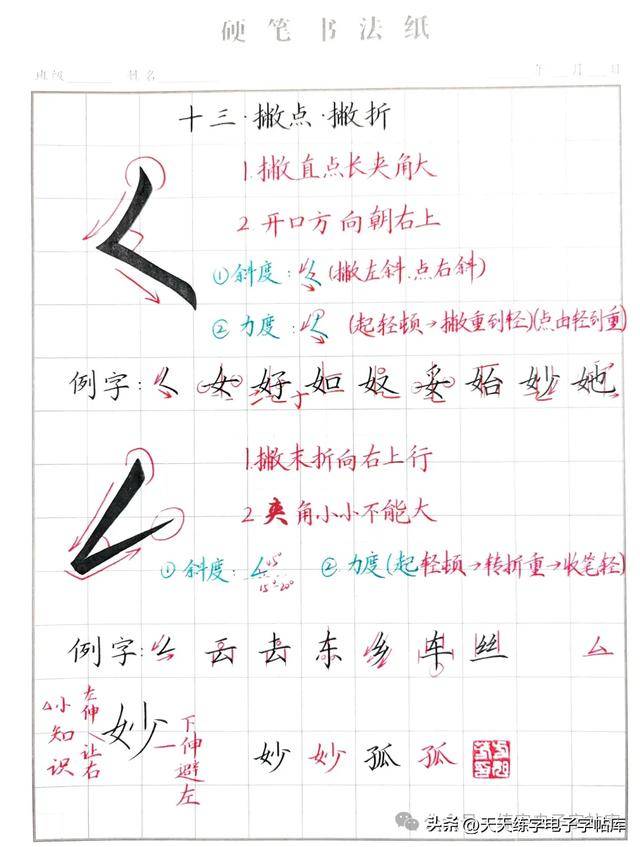 硬笔书法纸
班级 姓名 年 月 日
十三·撇点·撇折
1.撇直点长夹角大
2.开口方向朝右上
①斜度:𡿨(撇左斜.点右斜)
②力度:𡿨(起轻顿→撇重到轻)(点由轻到重)
例字:𡿨女好如奴妥始妙她
1.撇末折向右上行
2.夹角小小不能大
①斜度: 45° 15°~20° ②力度(起轻顿→转折重→收笔轻)
例字:𠃋云去东乡车丝
△小知识
左伸让右
妙
下伸避左
妙妙孤孤
头条@天天练字电子字帖库